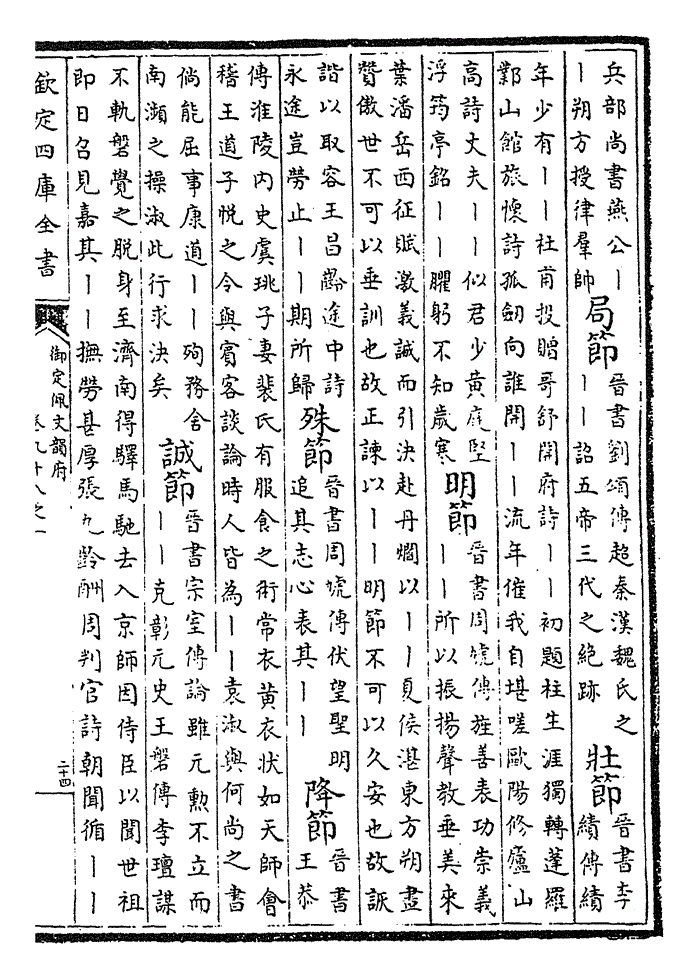 兵部尚書燕公｜
｜朔方授律羣帥
局節
晉書劉頌傳超秦漢魏氏之
｜｜詔五帝三代之絶跡
壯節
晉書李
績傳績
年少有｜｜杜甫投贈哥舒開府詩｜｜初題柱生涯獨轉蓬羅
鄴山館旅懷詩孤劒向誰開｜｜流年催我自堪嗟歐陽修廬山
高詩丈夫｜｜似君少黄庭堅
浮筠亭銘｜｜臞躬不知歲寒
明節
晉書周虓傳旌善表功崇義
｜｜所以振揚聲教垂美來
葉潘岳西征賦激義誠而引決赴丹爓以｜｜夏侯湛東方朔畫
贊傲世不可以垂訓也故正諫以｜｜明節不可以久安也故詼
諧以取容王昌齡途中詩
永途豈勞止｜｜期所歸
殊節
晉書周虓傳伏望聖明
追其志心表其｜｜
降節
晉書
王恭
傳淮陵内史虞珧子妻裴氏有服食之術常衣黄衣狀如天師會
稽王道子悦之令與賓客談論時人皆為｜｜袁淑與何尚之書
倘能屈事康道｜｜殉務舍
南瀕之操淑此行求決矣
誠節
晉書宗室傳論雖元勲不立而
｜｜克彰元史王磐傳李璮謀
不軌磐覺之脱身至濟南得驛馬馳去入京師因侍臣以聞世祖
即日召見嘉其｜｜撫勞甚厚張九齡酬周判官詩朝聞循｜｜
欽定四庫全書
御定佩文韻府
卷九十八之一
二十四